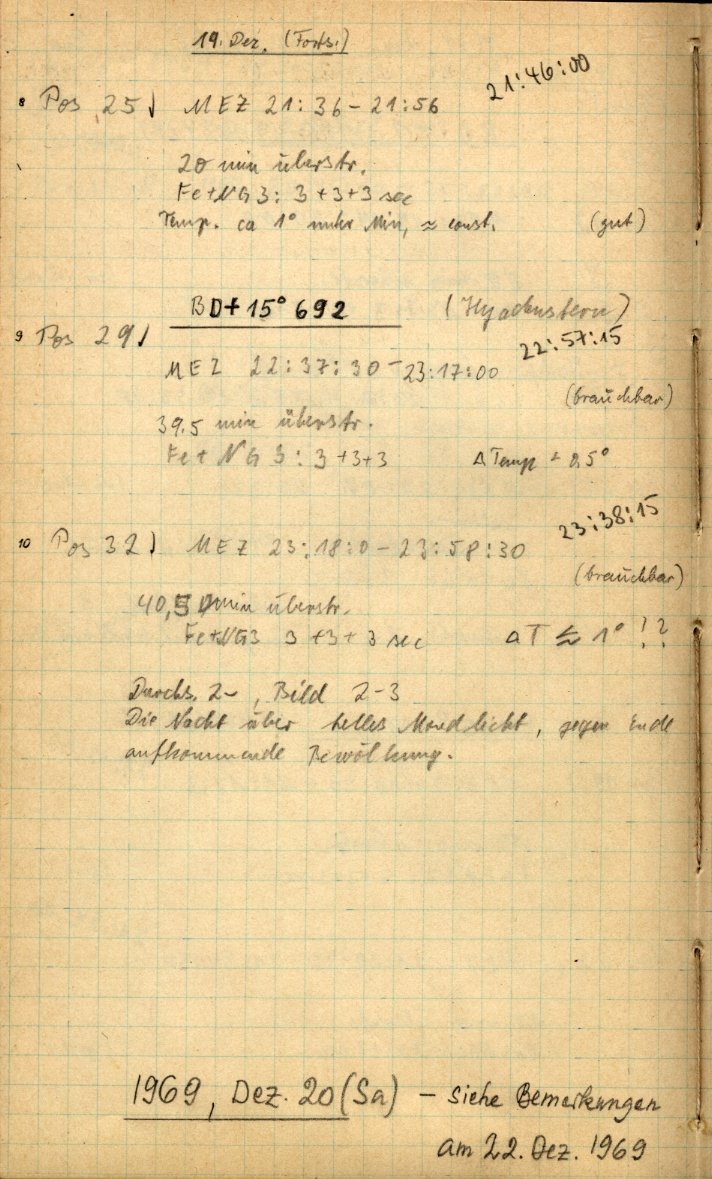 19. Dez. (Forts.)
21:46:00
8 Pos 25 MEZ 21:36 - 21:56
20 min überstr.
Fe+NG3: 3+3+3 sec
Temp. ca 1° unter Min, ≈ const. (gut)
BD+15° 692 (Hyadenstern)
9 Pos 29 22:57:15
MEZ 22:37:30 - 23:17:00
(brauchbar)
39.5 min überstr.
Fe + NG 3: 3+3+3 Δ Temp 0,5°
23:38:15
10 Pos 32 MEZ 23:18:0 - 23:58:30
(brauchbar)
40,5 min überstr.
Fe+NG3 3+3+3 sec ΔT ≲ 1° !?
Durchs. 2-, Bild 2-3
Die Nacht über helles Mondlicht, gegen Ende
aufkommende Bewölkung.
1969, Dez. 20 (Sa) - siehe Bemerkungen
am 22. Dez. 1969